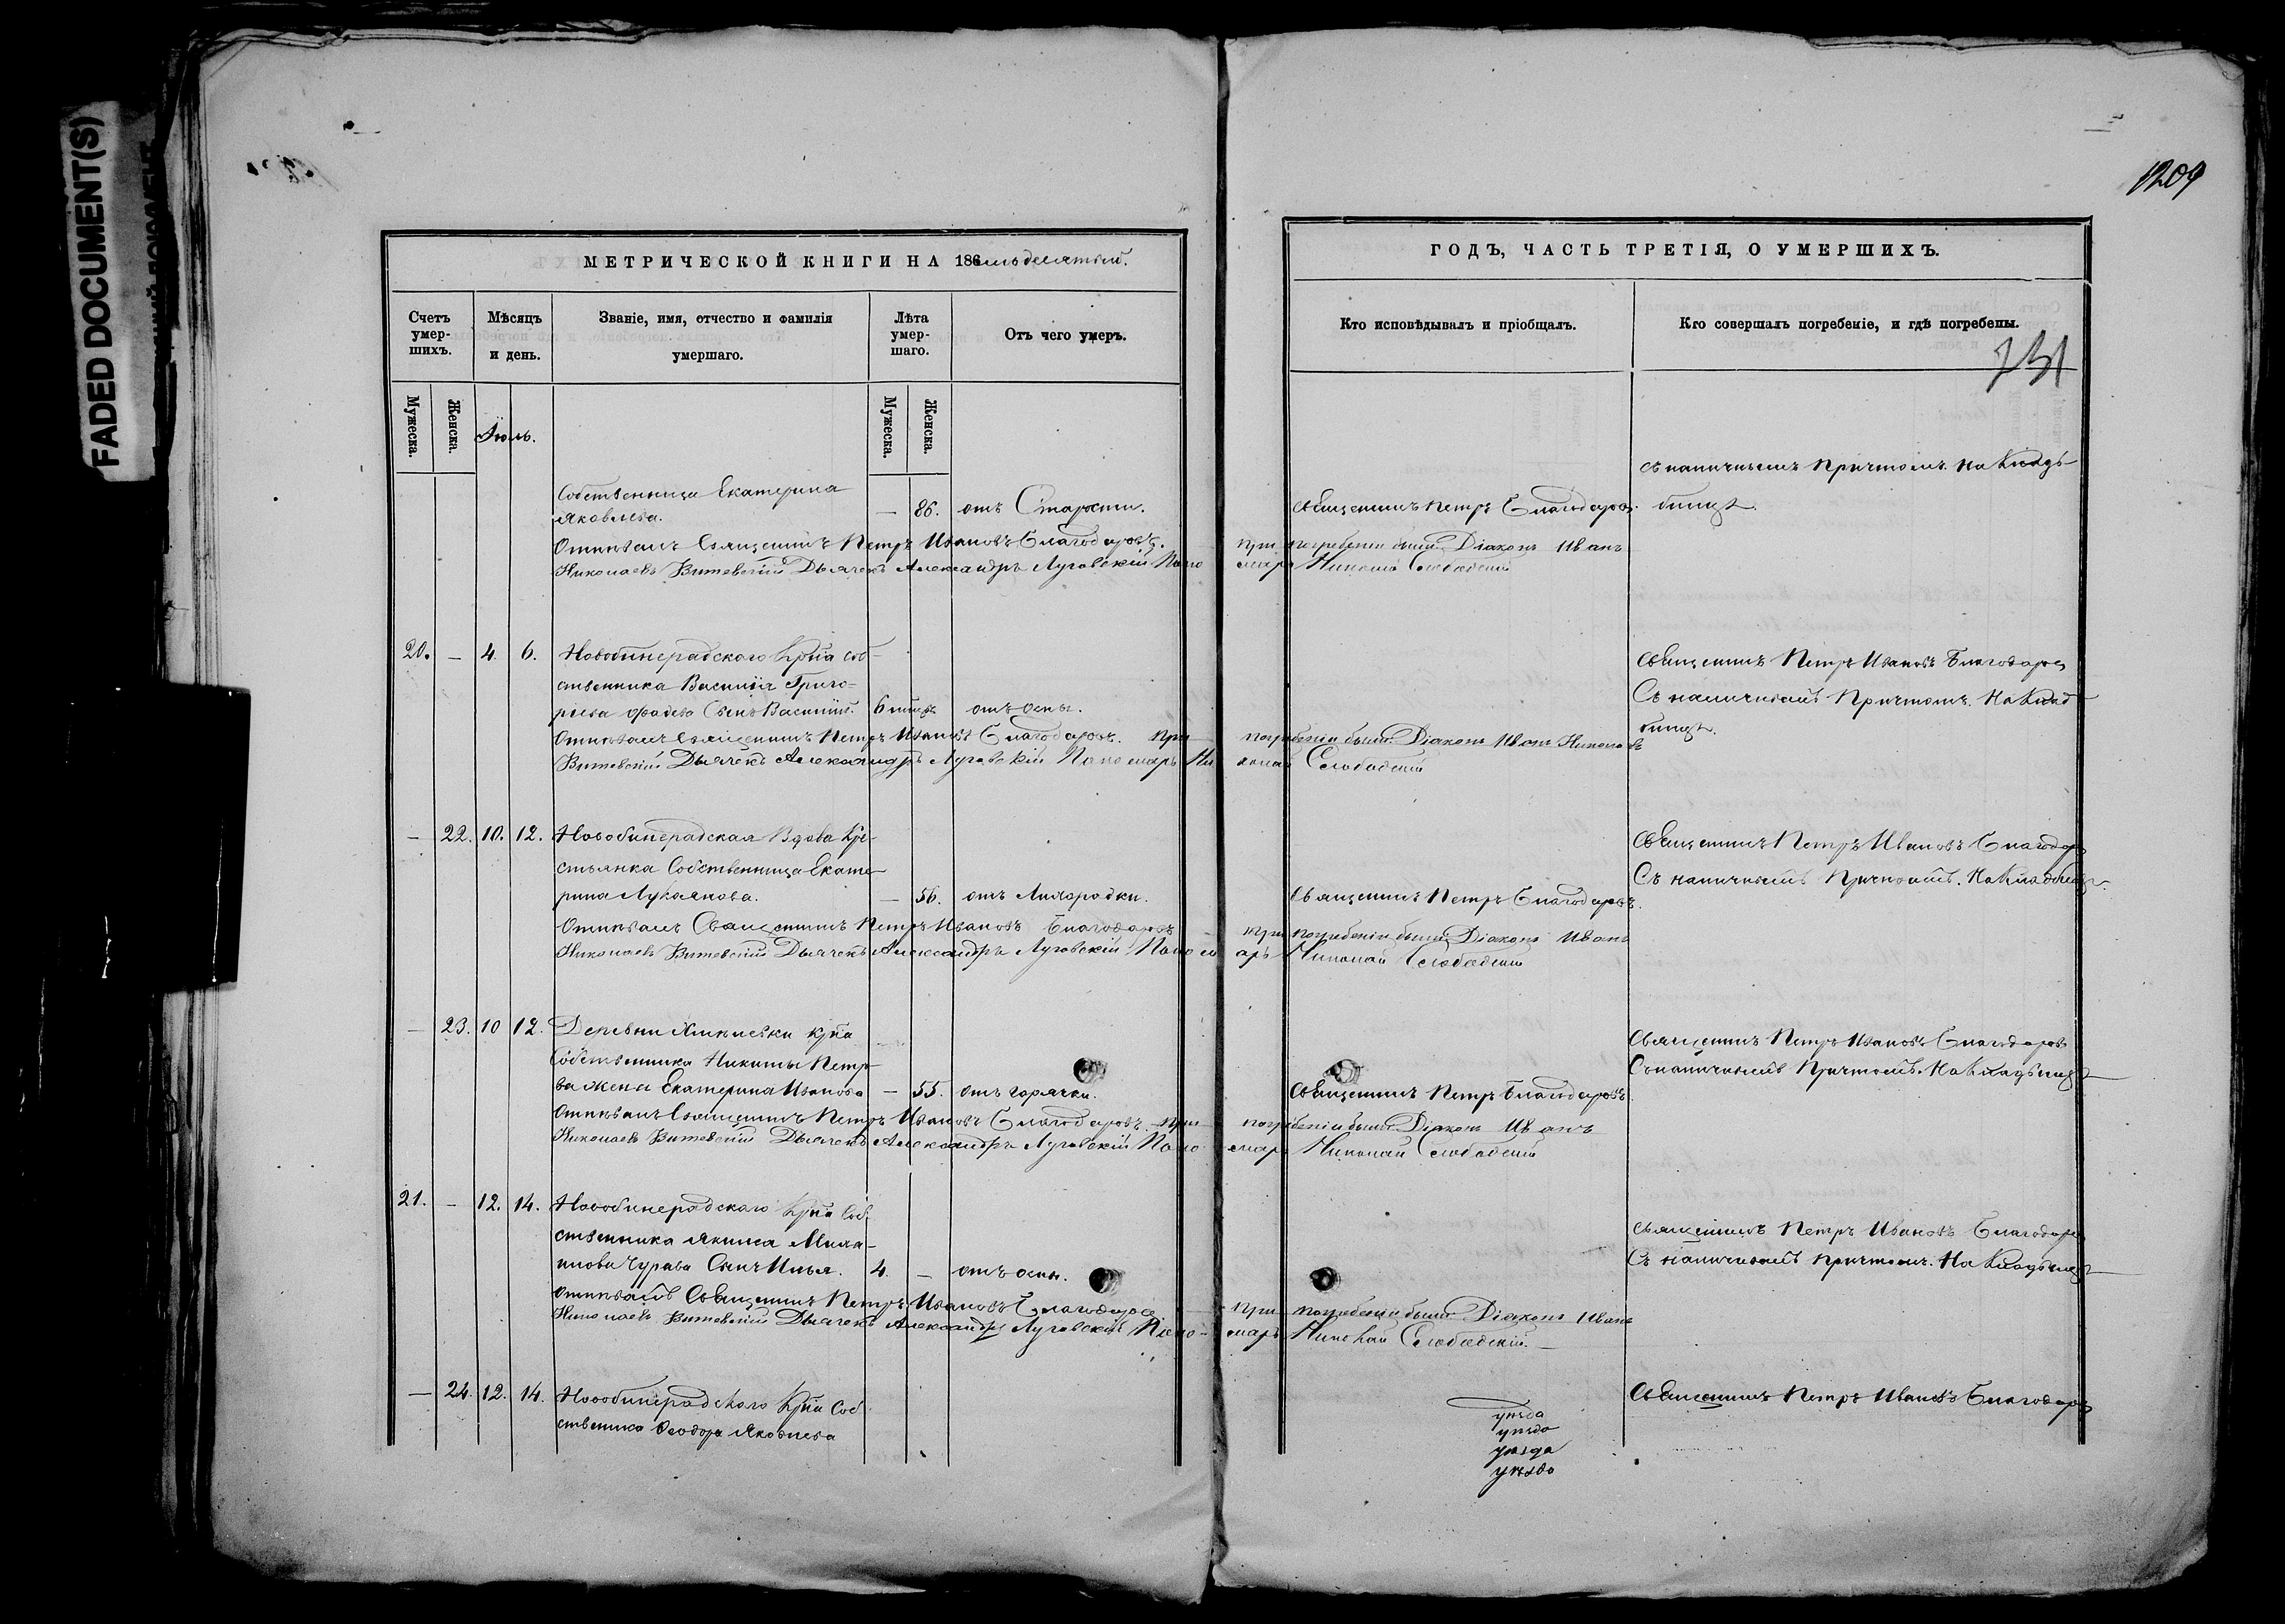 FADED DOCUMENT(S)
1209
МЕТРИЧЕСКОЙ КНИГИ НА 186 семьдесятый.
Счетъ умер-шихъ.
Мѣсяцъ и день.
Званіе, имя, отчество и фамилія умершаго.
Лѣта умер-шаго.
Отъ чего умеръ.
Мужеска.
Женска.
Іюль.
Мужеска.
Женска.
Собственница Екатерина
Яковлева. — 86. отъ Старости.
Отпѣвалъ Священникъ Петръ Ивановъ Благодаровъ.
Николаевъ Витевскій Дьячекъ Александръ Луговскій Поно
20. — 4. 6. Новобинерадского Крна соб-
ственника Василія Григо-
рьева Сынъ Василій. 6 отъ оспы.
Отпѣвалъ Священникъ Петръ Ивановъ Благодаровъ. при
Витевскій Дьячекъ Александръ Луговскій Пономарь Ни
— 22. 10. 12. Новобинерадская Вдова Кре-
стьянка Собственница Екате-
рина Лукоянова. — 56. отъ Лихорадки.
Отпѣвалъ Священникъ Петръ Ивановъ Благодаровъ
Николаевъ Витевскій Дьячекъ Александръ Луговскій Поном
— 23. 10 12. Деревни Крна
Собственника Никиты Петро-
ва жена Екатерина Иванова — 55. отъ горячки.
Отпѣвалъ Священникъ Петръ Ивановъ Благодаровъ. при
Николаевъ Витевскій Дьячекъ Александръ Луговскій Поно
21. — 12. 14. Новобинерадского Крна Соб-
ственника Якима
Сынъ Илья. 4. — отъ оспы.
Отпѣвалъ Священникъ Петръ Ивановъ Благодаровъ
Николаевъ Витевскій Дьячекъ Александръ Луговскій Поно-
— 24. 12. 14. Новобинерадского Крна Соб
ственника Ѳеодора Яковлева
ГОДЪ, ЧАСТЬ ТРЕТІЯ, О УМЕРШИХЪ.
Кто исповѣдывалъ и пріобщалъ.
Кто совершалъ погребеніе, и гдѣ погребены.
731
съ наличнымъ Причтомъ. на Кладъ-
Священникъ Петръ Благодаровъ. бищѣ.
при погребеніи были Діаконъ Иванъ
марь Николай Слободскій
Священникъ Петръ Ивановъ Благодаровъ
Съ наличнымъ Причтомъ. На Клад
бищѣ.
погребеніи были Діаконъ Иванъ Николаевъ
колай Слободскій
Священникъ Петръ Ивановъ Благодаровъ
Съ наличнымъ Причтомъ. На Кладбищѣ.
Священникъ Петръ Благодаровъ.
при погребеніи были Діаконъ Иванъ
арь Николай Слободскій
Священникъ Петръ Ивановъ Благодаровъ
Съ наличнымъ Причтомъ. На Кладбищѣ
Священникъ Петръ Благодаровъ.
погребеніи были Діаконъ Иванъ
марь Николай Слободскій
Священникъ Петръ Ивановъ Благодаровъ
Съ наличнымъ Причтомъ. На Кладбищѣ
при погребеніи были Діаконъ Иванъ
марь Николай Слободскій.
Священникъ Петръ Ивановъ Благодаровъ